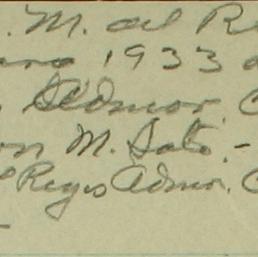 . M. del R
1933 a
Admor. C
on M. Soto.-
Reyes Admor. C